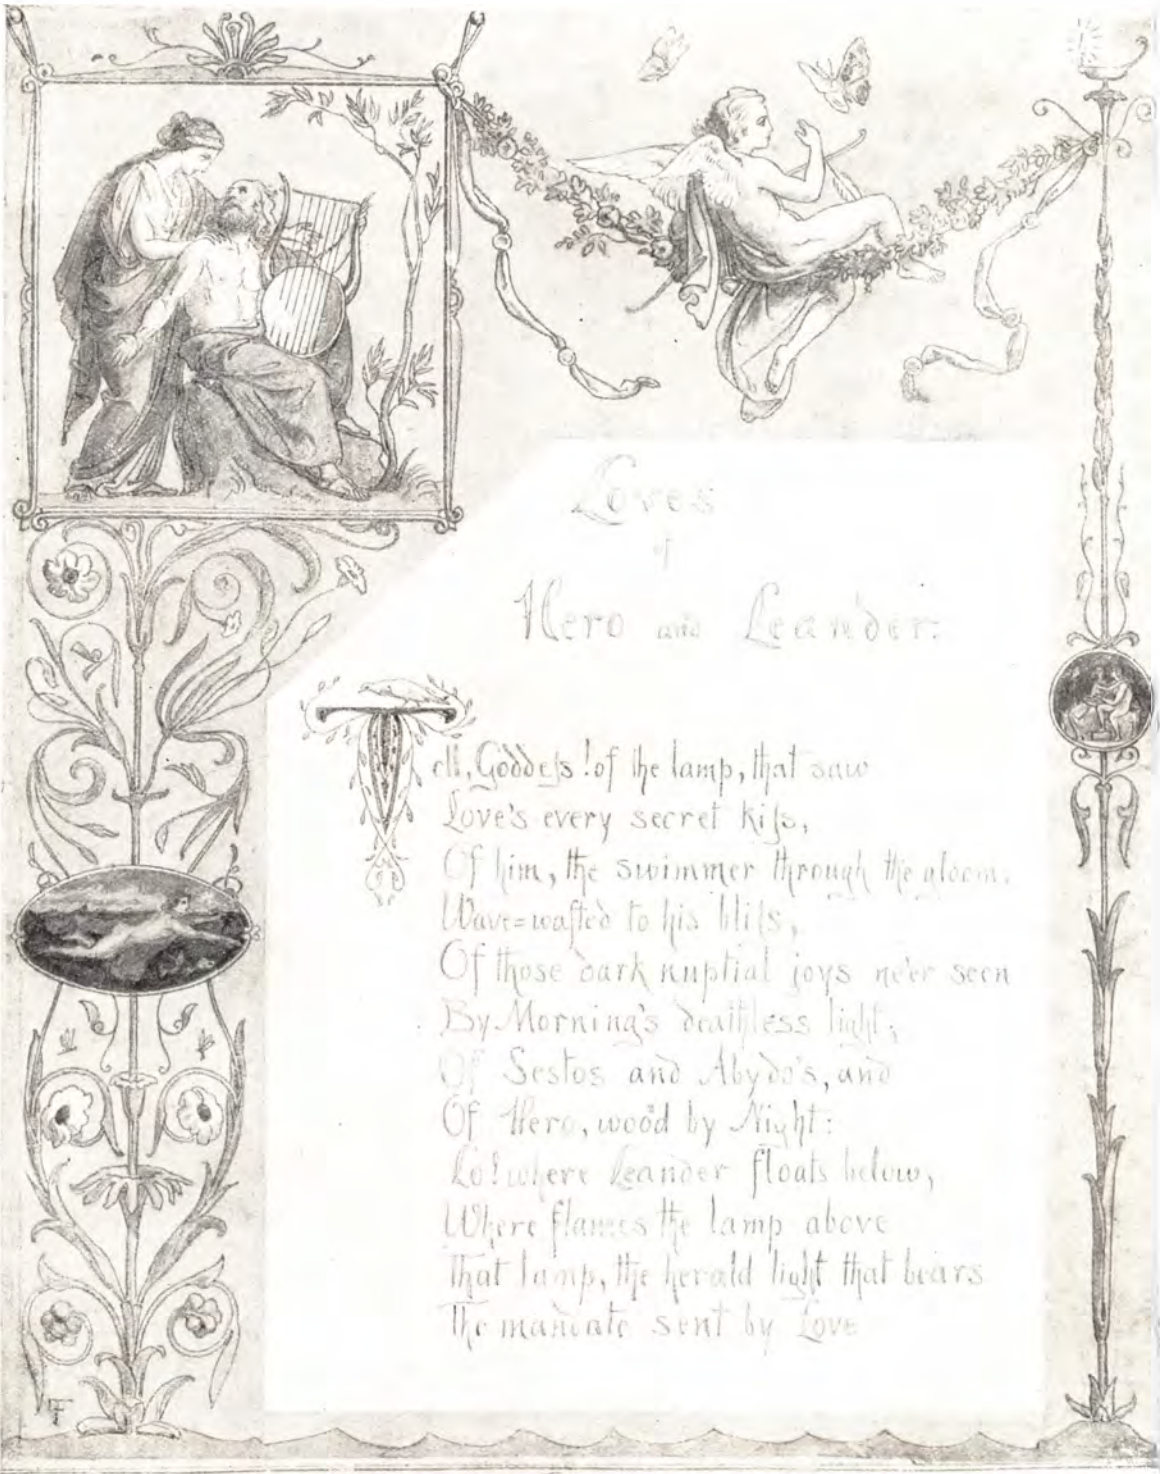 Loves
of
Hero and Leander:
Tell, Goddess! of the lamp, that saw
Love's every secret kiss,
Of him, the swimmer through the gloom,
Wave=wafted to his bliss,
Of those dark nuptial joys ne'er seen
By Morning's deathless light;
Of Sestos and Abydo's, and
Of Hero, woo'd by Night:
Lo! where Leander floats below,
Where flames the lamp above
That lamp, the herald light that bears
The mandate sent by Love